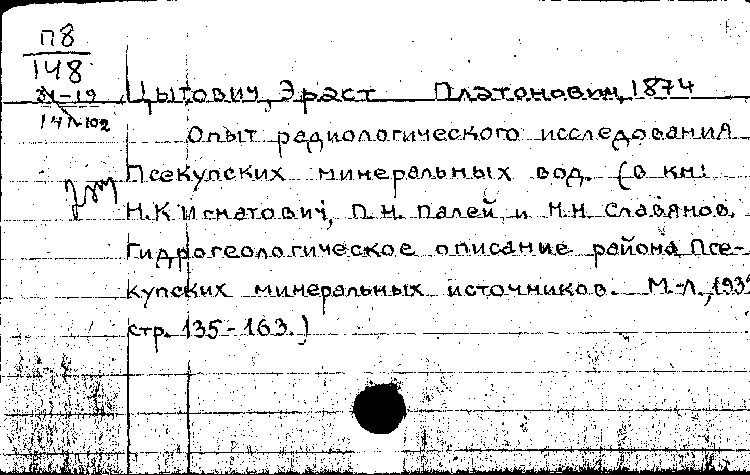 П8
148
31-19
Цытович, Эраст Платонович, 1874
Опыт радиологического исследования
Псекупских минеральных вод. (в кн:
Н.К Игнатович, П.Н. Палей и Н.Н. Славянов.
Гидрогеологическое описание района Псе-
купских минеральных источников. М.-Л.,
стр. 135-163.)